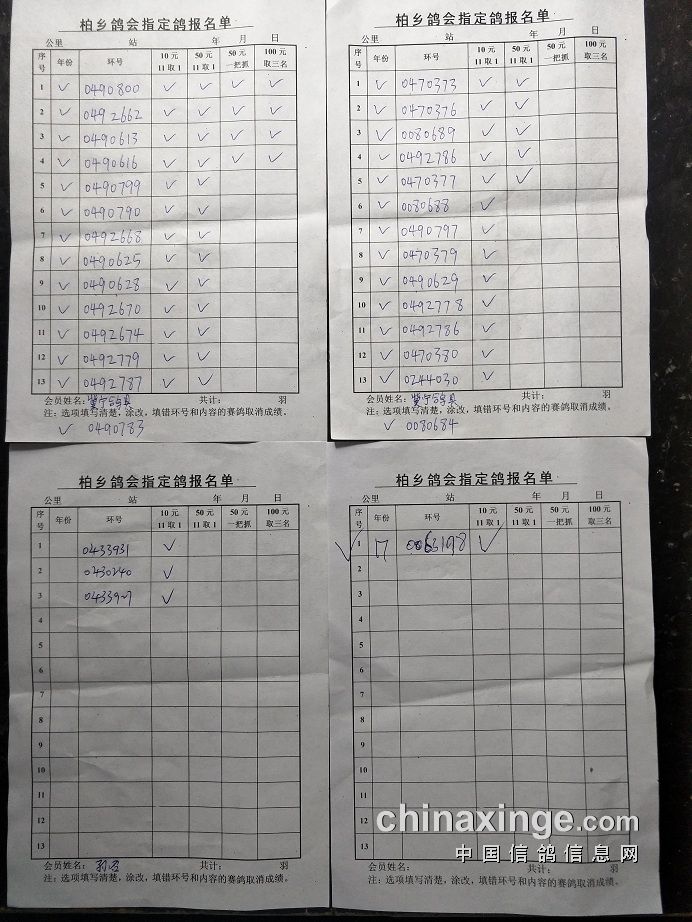 柏乡鸽会指定鸽报名单
公里 站 年 月 日
序号 年份 环号 10元11取1 50元11取1 50元一把抓 100元取三名
1 ✓ 0490800 ✓ ✓ ✓ ✓
2 ✓ 0492662 ✓ ✓ ✓ ✓
3 ✓ 0490613 ✓ ✓ ✓ ✓
4 ✓ 0490616 ✓ ✓ ✓ ✓
5 ✓ 0490799 ✓ ✓
6 ✓ 0490790 ✓ ✓
7 ✓ 0492668 ✓ ✓
8 ✓ 0490625 ✓ ✓
9 ✓ 0490628 ✓ ✓
10 ✓ 0492670 ✓ ✓
11 ✓ 0492674 ✓ ✓
12 ✓ 0492779 ✓ ✓
13 ✓ 0492787 ✓ ✓
会员姓名: 共计: 羽
注:选项填写清楚,涂改,填错环号和内容的赛鸽取消成绩。
✓ 0490783
柏乡鸽会指定鸽报名单
公里 站 年 月 日
序号 年份 环号 10元11取1 50元11取1 50元一把抓 100元取三名
1 ✓ 0470373 ✓ ✓
2 ✓ 0470376 ✓ ✓
3 ✓ 0080689 ✓ ✓
4 ✓ 0492786 ✓ ✓
5 ✓ 0470377 ✓ ✓
6 ✓ 0080688 ✓
7 ✓ 0490797 ✓
8 ✓ 0470379 ✓
9 ✓ 0490629 ✓
10 ✓ 0492778 ✓
11 ✓ 0492786 ✓
12 ✓ 0470380 ✓
13 ✓ 0244030 ✓
会员姓名: 共计: 羽
注:选项填写清楚,涂改,填错环号和内容的赛鸽取消成绩。
✓ 0080684
柏乡鸽会指定鸽报名单
公里 站 年 月 日
序号 年份 环号 10元11取1 50元11取1 50元一把抓 100元取三名
1 0433931 ✓
2 0430240 ✓
3 ✓
4
5
6
7
8
9
10
11
12
13
会员姓名: 共计: 羽
注:选项填写清楚,涂改,填错环号和内容的赛鸽取消成绩。
柏乡鸽会指定鸽报名单
公里 站 年 月 日
序号 年份 环号 10元11取1 50元11取1 50元一把抓 100元取三名
✓ 1 17 ✓
2
3
4
5
6
7
8
9
10
11
12
13
会员姓名: 共计: 羽
注:选项填写清楚,涂改,填错环号和内容的赛鸽取消成绩。
chinaxinge.com
中国信鸽信息网